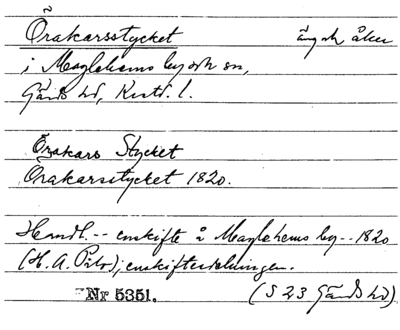 Örakarsstycket äng och åker
i Maglehems by och sn,
Gärds hd, Krist. l.
Örakars Stycket
Örakarsstycket 1820.
Handl. -- enskifte å Maglehems by -- 1820
(H. A. ); enskiftesdelningen.
Nr 5351. (S 23 Gärds hd)